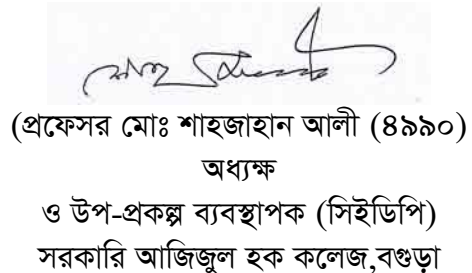 (প্রফেসর মোঃ শাহজাহান আলী (৪৯৯০)
অধ্যক্ষ
ও উপ-প্রকল্প ব্যবস্থাপক (সিইডিপি)
সরকারি আজিজুল হক কলেজ,বগুড়া